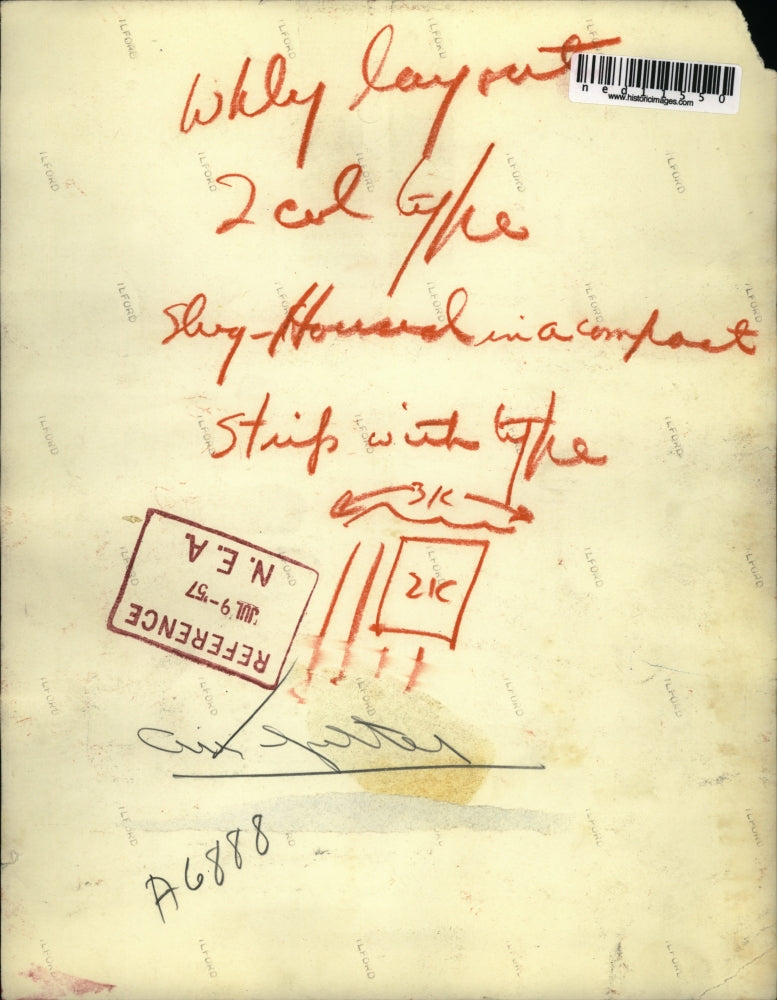 Wkly layout
ned11550
www.historicimages.com
2 col type
Slug - Housed in a compact
strip with type
3K
2K
REFERENCE
JUL 9-'57
N.E.A.
air filter
A6888
ILFORD